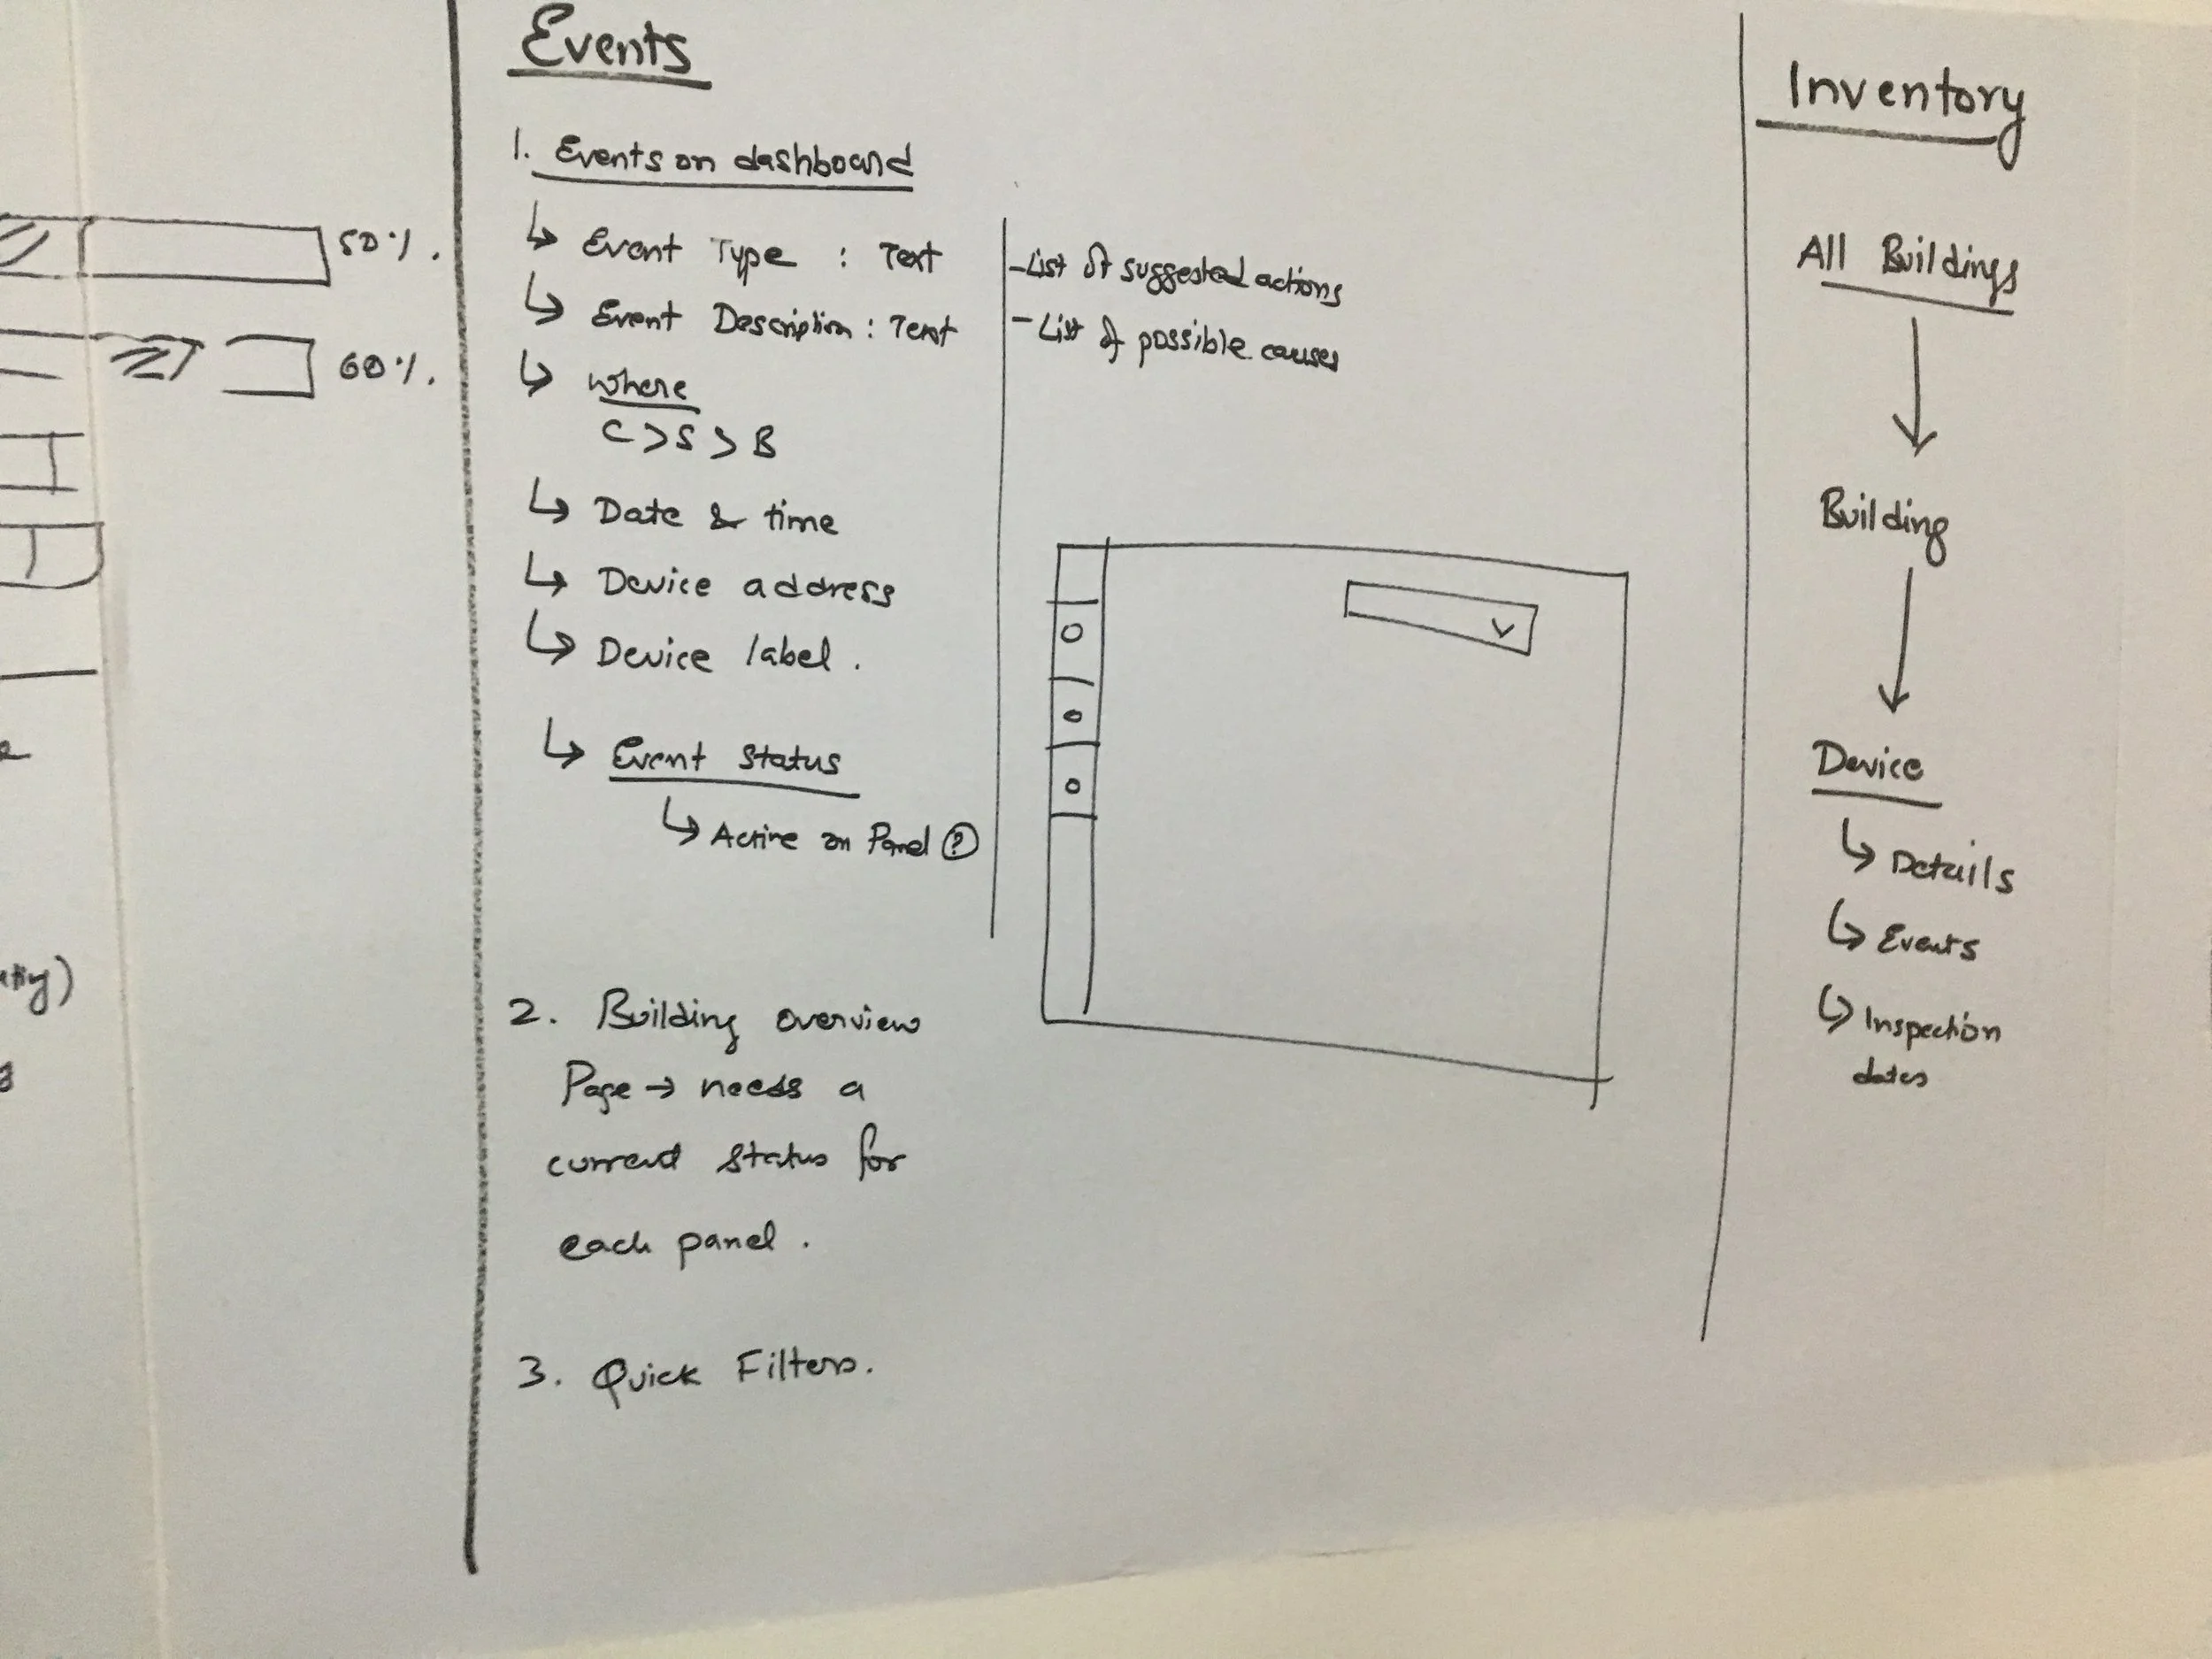 50%.
60%.
Events
1. Events on dashboard
↳ Event Type : Text
↳ Event Description : Text
↳ where
C > S > B
↳ Date & time
↳ Device address
↳ Device label.
↳ Event status
↳ Active on Panel ?
2. Building overview
Page → needs a
current status for
each panel.
3. Quick Filters.
- List of suggested actions
- List of possible causes
Inventory
All Buildings
Building
Device
↳ Details
↳ Events
↳ Inspection
dates